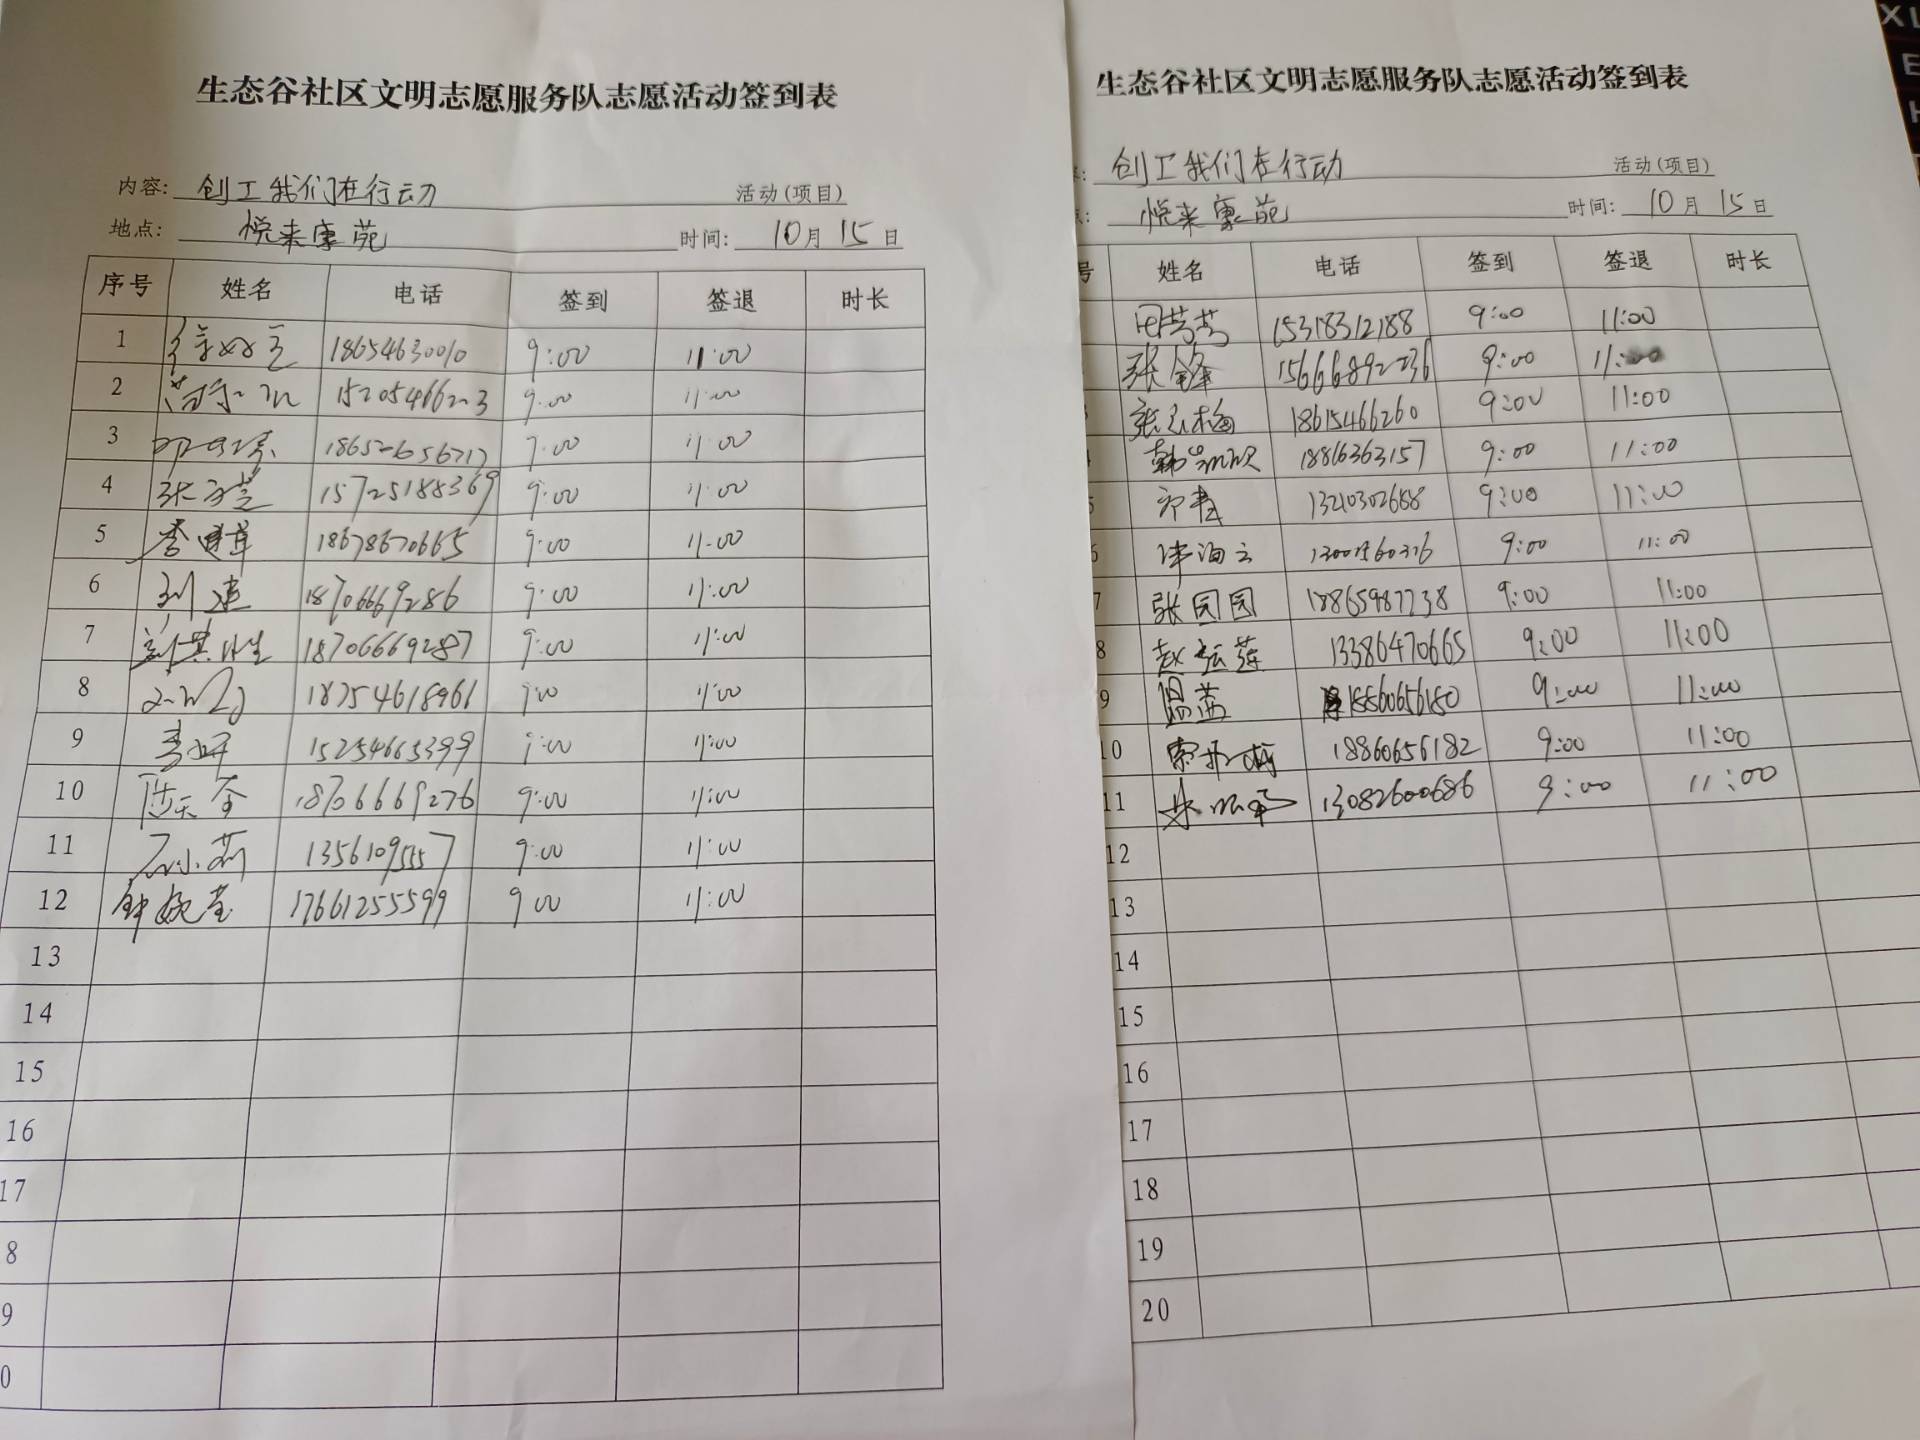 生态谷社区文明志愿服务队志愿活动签到表
内容: 创工我们在行动 活动(项目)
地点: 悦来康苑 时间: 10月15日
序号 姓名 电话 签到 签退 时长
1 18654630010 9:00 11:00
2 9:00 11:00
3 11:00
4 15725188369 9:00 11:00
5 18678670665 9:00 11:00
6 刘建 18706669286 9:00 11:00
7 18706669287 9:00 11:00
8 18754618961 11:00
9 李妍 15254665399 9:00 11:00
10 18706669276 9:00 11:00
11 石小莉 13561095557 9:00 11:00
12 钟婉莹 17661255599 9 00 11:00
13
14
15
16
17
8
9
0
生态谷社区文明志愿服务队志愿活动签到表
创工我们在行动 活动(项目)
悦来康苑 时间: 10月15日
号 姓名 电话 签到 签退 时长
15318312188 9:00 11:00
张锋 15666892236 9:00 11:00
18615466260 9:00 11:00
18816363157 9:00 11:00
13210302688 9:00 11:00
9:00 11:00
7 张园园 18865987738 9:00 11:00
8 13386470665 9:00 11:00
9 温蕾 18860656180 9:00 11:00
10 18860656182 9:00 11:00
11 13082600686 9:00 11:00
12
13
14
15
16
17
18
19
20